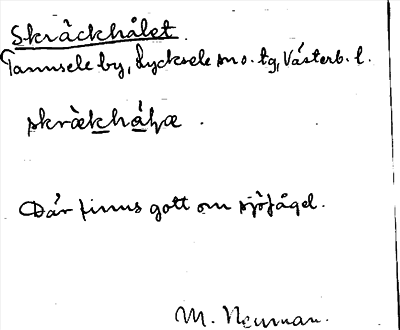 Skräckhålet.
Tannsele by, Lycksele sn o. tg, Västerb. l.
skräkhåḷæ.
Där finns gott om sjöfågel.
M. Neuman.